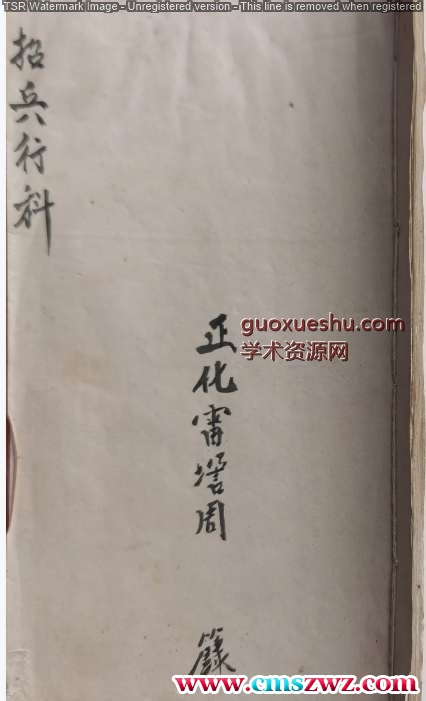 TSR Watermark Image - Unregistered version - This line is removed when registered
招兵行科
guoxueshu.com
学术资源网
正化雷壇周
籙
www.cmszwz.com